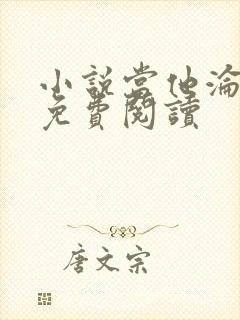 小說當他淪
免費閱讀
唐文宗